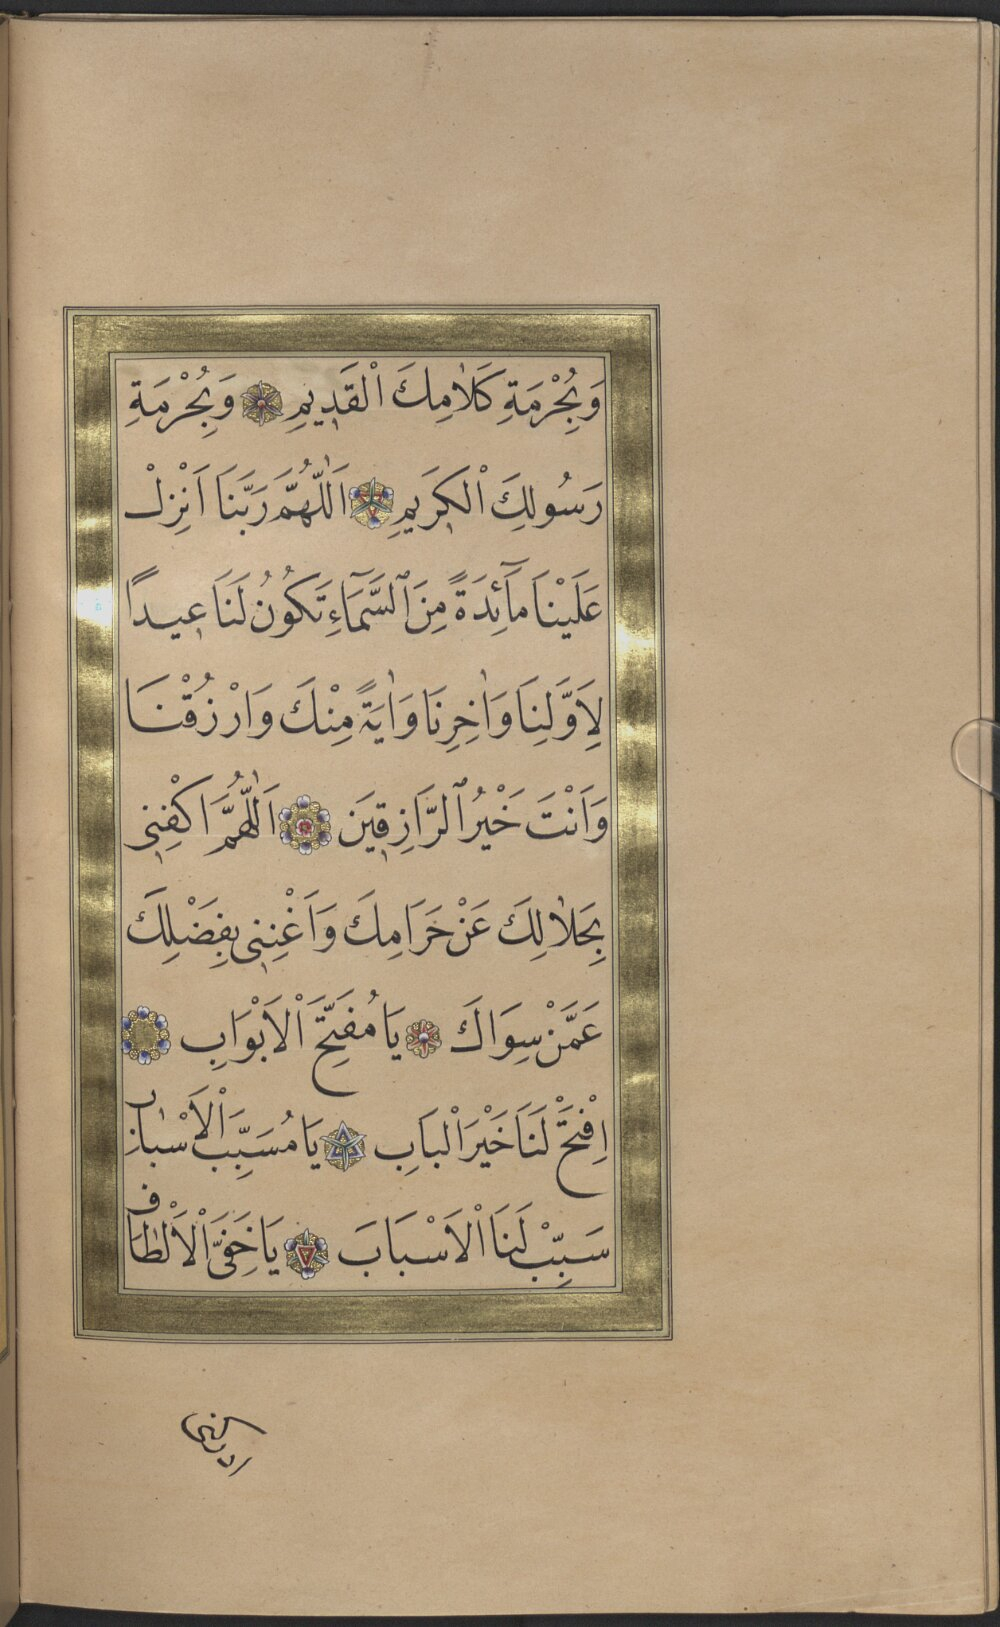 وَبِحُرْمَةِ كَلَامِكَ الْقَدِيمِ وَبِحُرْمَةِ
رَسُولِكَ الْكَرِيمِ اَللّٰهُمَّ رَبَّنَا اَنْزِلْ
عَلَيْنَا مَآئِدَةً مِنَ السَّمَآءِ تَكُونُ لَنَا عِيدًا
لِاَوَّلِنَا وَاٰخِرِنَا وَاٰيَةً مِنْكَ وَارْزُقْنَا
وَاَنْتَ خَيْرُ الرَّازِقِينَ اَللّٰهُمَّ اكْفِنِى
بِحَلَالِكَ عَنْ حَرَامِكَ وَاَغْنِنِى بِفَضْلِكَ
عَمَّنْ سِوَاكَ يَا مُفَتِّحَ الْاَبْوَابِ
اِفْتَحْ لَنَا خَيْرَ الْبَابِ يَا مُسَبِّبَ الْاَسْبَابِ
سَبِّبْ لَنَا الْاَسْبَابَ يَا خَفِىَّ الْاَلْطَافِ